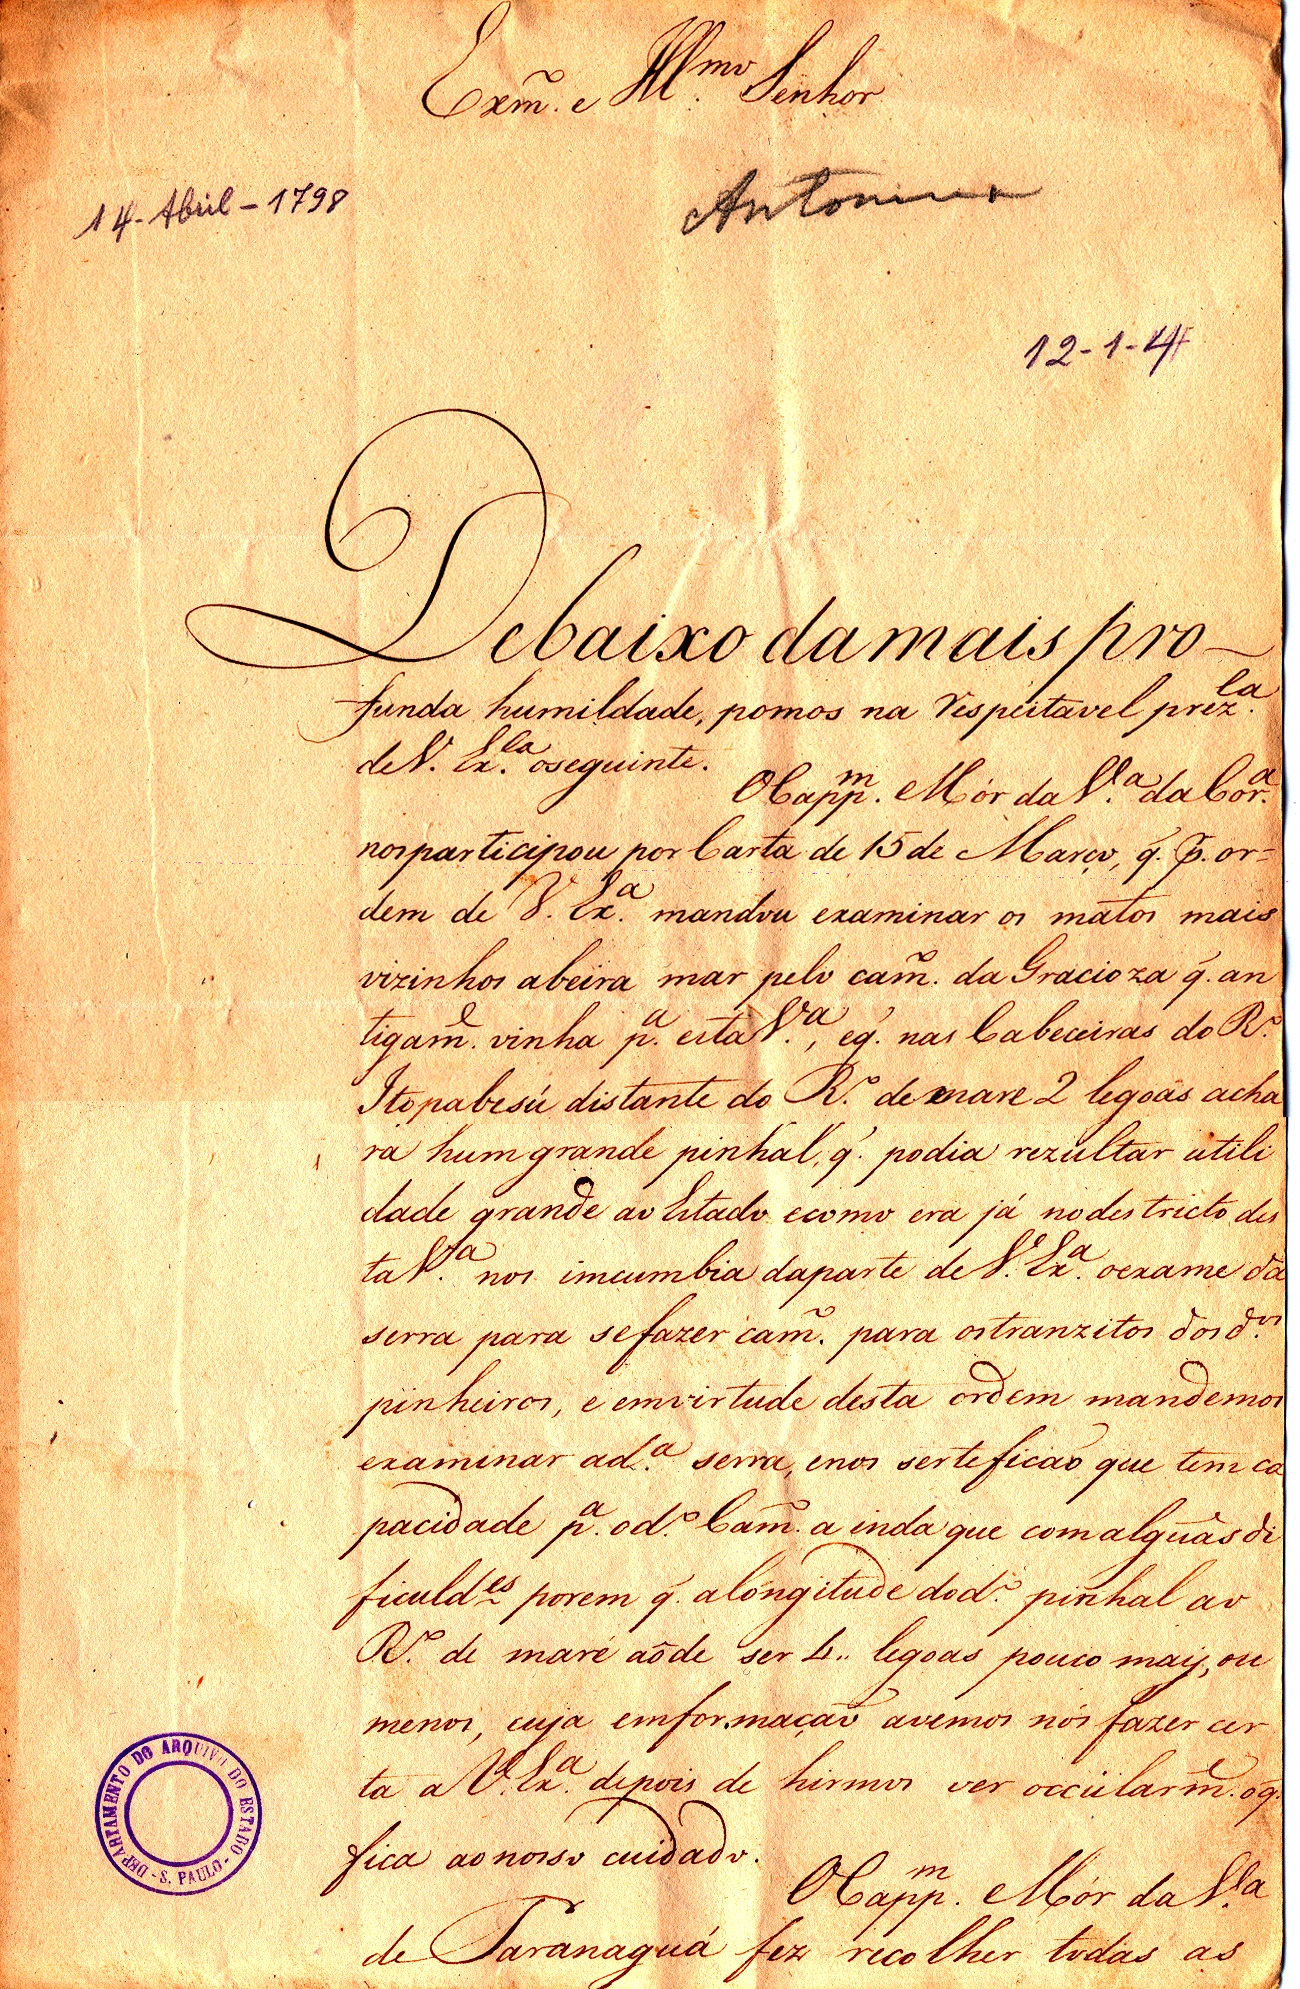 Exm̃. e Ill.mo Senhor
14 - Abril - 1798
Antonina
12-1-4
Debaixo da mais pro-
funda humildade, pomos na respeitavel prez.la
de V. Ex.la o seguinte.
O Capp.m Mór da V.la da Cor.a
nos participou por Carta de 15 de Março, q. p. or=
dem de V. Ex.a mandou examinar os matos mais
vizinhos abeira mar pelo cam̃. da Gracioza q. an
tigam.e vinha p.a esta V.a, eq. nas Cabeceiras do R.o
Itopabesú distante do R.o de mare 2 legoas acha
rá hum grande pinhal, q. podia rezultar utili
dade grande ao Estado ecomo era já nodestricto des
ta V.la nos imcumbia daparte de V. Ex.a oexame da
serra para sefazer cam̃. para ostranzitos dos d.os
pinheiros, e emvirtude desta ordem mandemos
examinar ad.a serra, enos serteficaõ que tem ca
pacidade p.a od.o Cam̃. a inda que comalguãs di
ficuld.es porem q. alongitude dod.o pinhal ao
R.o de maré aõde ser 4.. legoas pouco mais, ou
menos, cuja emformaçaõ avemos nós fazer cer
ta a V. Ex.a depois de hirmos ver occularm.e oq.
fica ao nosso cuidado.
O Capp.m Mór da V.la
de Paranaguá fez recolher todas as
DEPARTAMENTO DO ARQUIVO DO ESTADO - S. PAULO -